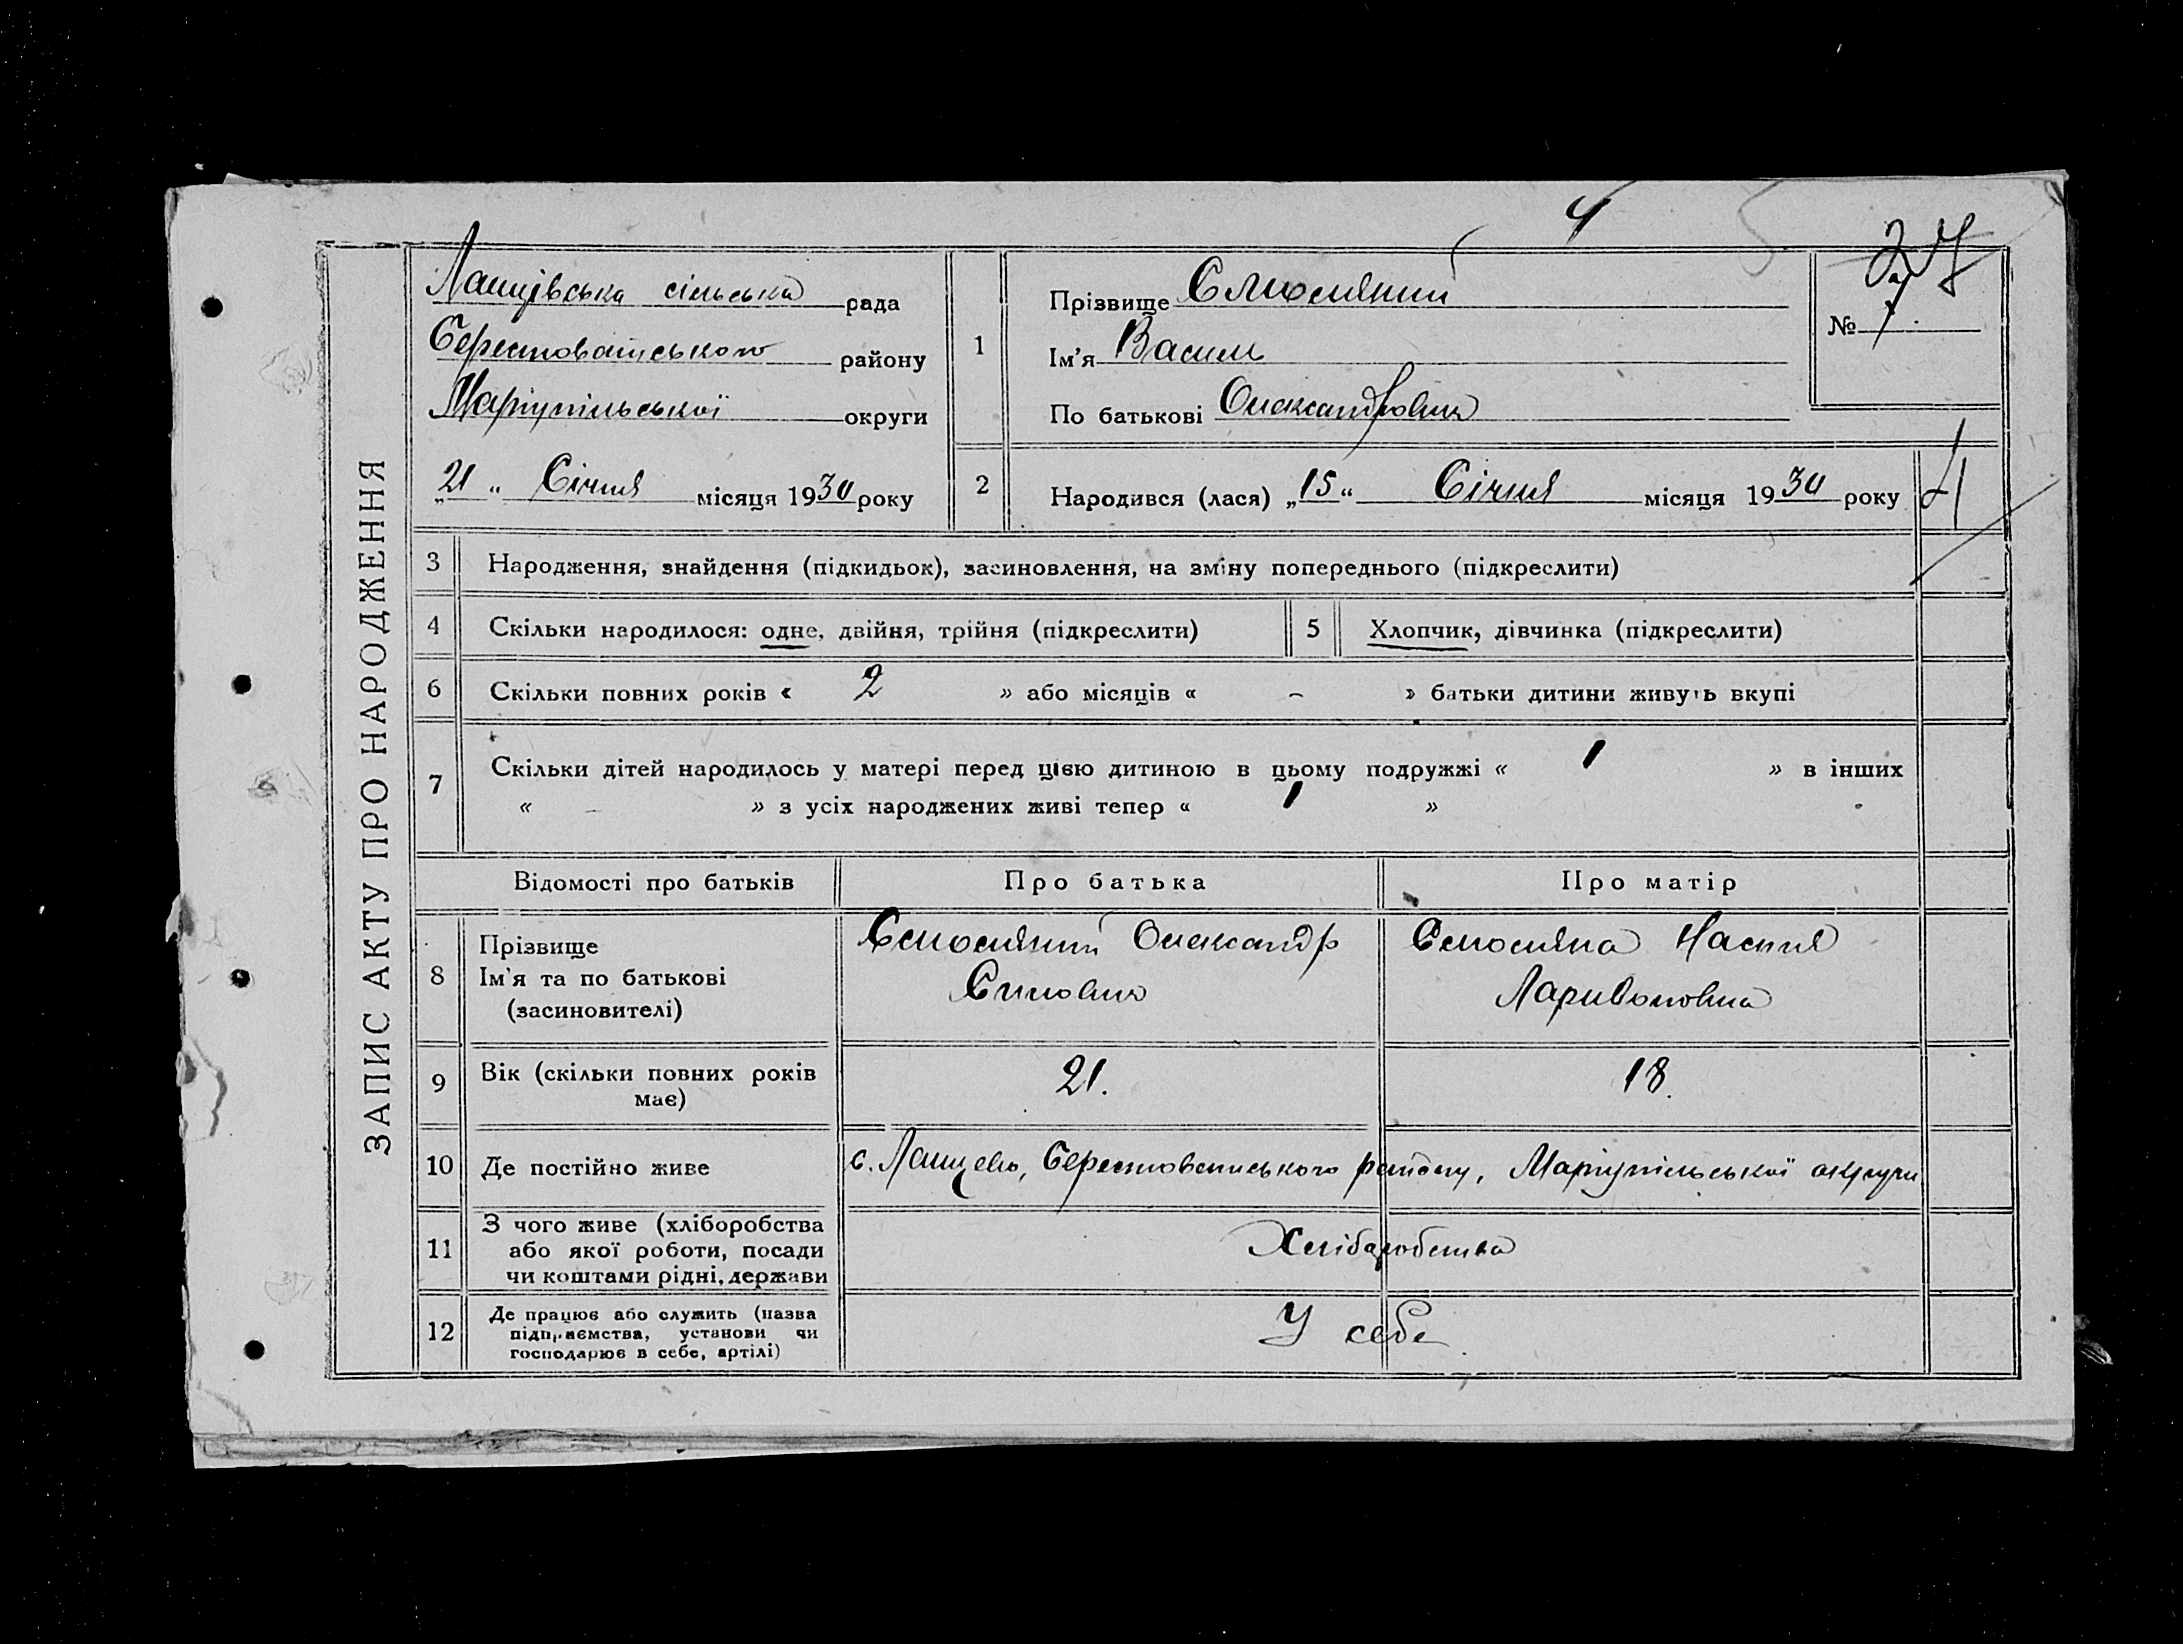 4
27
ЗАПИС АКТУ ПРО НАРОДЖЕННЯ
сільська рада
району
Маріупільської округи
„21“ Січня місяця 1930 року
1
Прізвище
Ім'я Василь
По батькові Олександрович
№ 7.
2
Народився (лася) „15“ Січня місяця 1930 року
3 Народження, знайдення (підкидьок), засиновлення, на зміну попереднього (підкреслити)
4 Скільки народилося: одне, двійня, трійня (підкреслити)
5 Хлопчик, дівчинка (підкреслити)
6 Скільки повних років « 2 » або місяців « – » батьки дитини живуть вкупі
7 Скільки дітей народилось у матері перед цією дитиною в цьому подружжі « 1 » в інших
« – » з усіх народжених живі тепер « 1 »
Відомості про батьків Про батька Про матір
8
Прізвище
Ім'я та по батькові
(засиновителі)
Олександр
Настя
Ларивоновна
9
Вік (скільки повних років
має)
21.
18.
10 Де постійно живе
с. району, Маріупільської округи
11
З чого живе (хліборобства
або якої роботи, посади
чи коштами рідні, держави
Хліборобства
12
Де працює або служить (назва
підприємства, установи чи
господарює в себе, артілі)
У себе